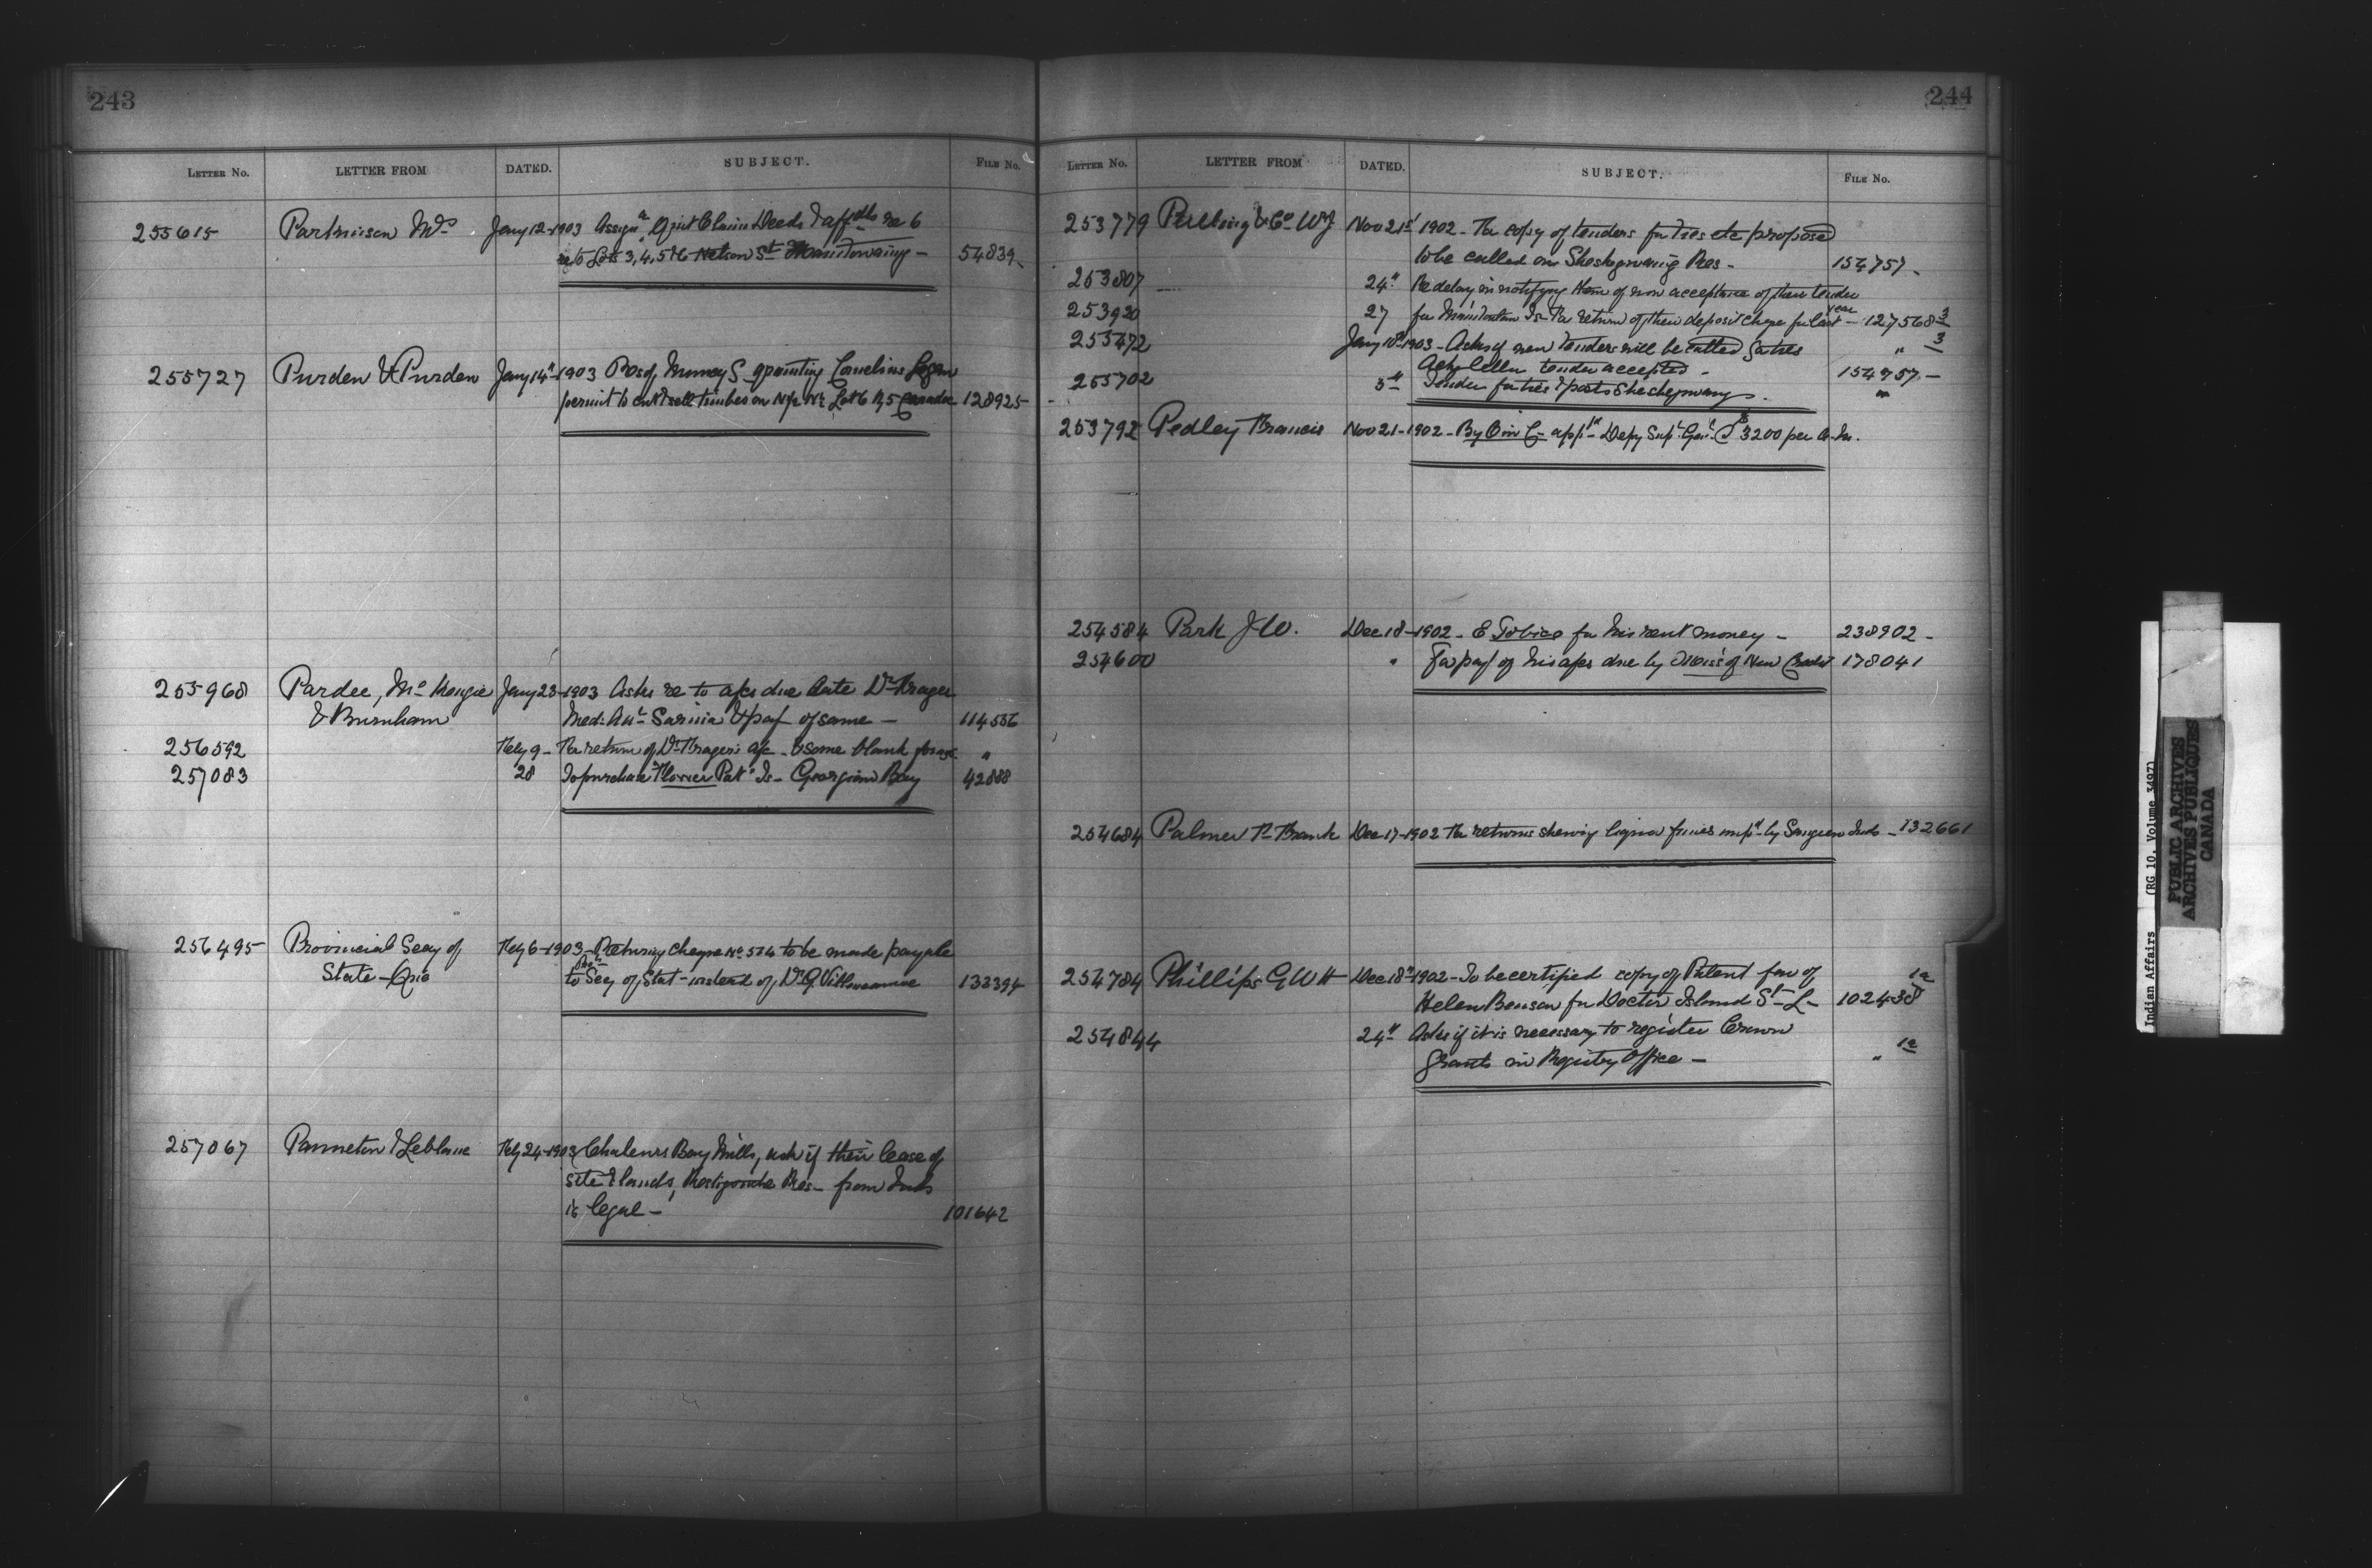 243
LETTER No. LETTER FROM DATED. SUBJECT. FILE No.
255615 Parkinson Mrs Jany 12-1903 Assign Quit Claim Deeds & affdts re 6
re to Lots 3, 4, 5 & 6 Nelson St Manitowaning - 54839
255727 Purden & Purden Jany 14" 1903 Res of Muncey S granting Cornelius Logan
permit to cut & sell timber on N½ Lot 6 R, 5 Caradoc 128925
255968 Pardee, Mc Kenzie Jany 23-1903 Asks re to a/cs due late Dr Fraser
& Burnham Med: Att Sarnia & pay of same - 114586
256592 Feby 9- For return of Dr Fraser's a/c - & some blank forms "
257083 28 To purchase "Flower Pot" Is- Georgian Bay 42888
256495 Provincial Secy of Feby 6-1903- Returning cheque No 574 to be made payable
State - Que to Prov Secy of Stat- instead of Dr G. Villeneuve 133394
257067 Panneton & Leblanc Feby 24-1903 Chaleurs Bay Mills, ask if their lease of
site & lands, Restigouche Res- from Inds
is legal - 101642
244
LETTER No. LETTER FROM DATED. SUBJECT. FILE No.
253779 Pulling & Co W J Nov 21st 1902- For copy of tenders for ties etc proposed
to be called on Sheshegwaning Res- 154757-
253807 24" Re delay in notifying them of non acceptance of their tender
253920 27 for Manitoulin Is- For return of their deposit cheque for last year - 127568 3
255472 Jany 10th 1903- Asks if new tenders will be called for ties " 3
Ack letter tender accepted - 154757-
255702 5" Tender for ties & posts Sheshegwaning. "
253792 Pedley Francis Nov 21-1902- By O in C- appt Depy Supt Genl @ $3200 per An.
254584 Park J W. Dec 18-1902- E Tobico for his rent money - 238902-
254600 " For pay of his a/cs due by Missis of New Credit 178041
254684 Palmer R Frank Dec 17-1902 For returns shewing liquor fines impd by Saugeen Inds - 132661
254784 Phillips G W H Dec 18" 1902- To be certified copy of Patent fav of
Helen Benson for Doctor Island St- L- 102438 1a
254844 24" Asks if it is necessary to register Crown
Grants in Registry Office - " 1a
Indian Affairs (RG 10, Volume 3497)
PUBLIC ARCHIVES
ARCHIVES PUBLIQUES
CANADA